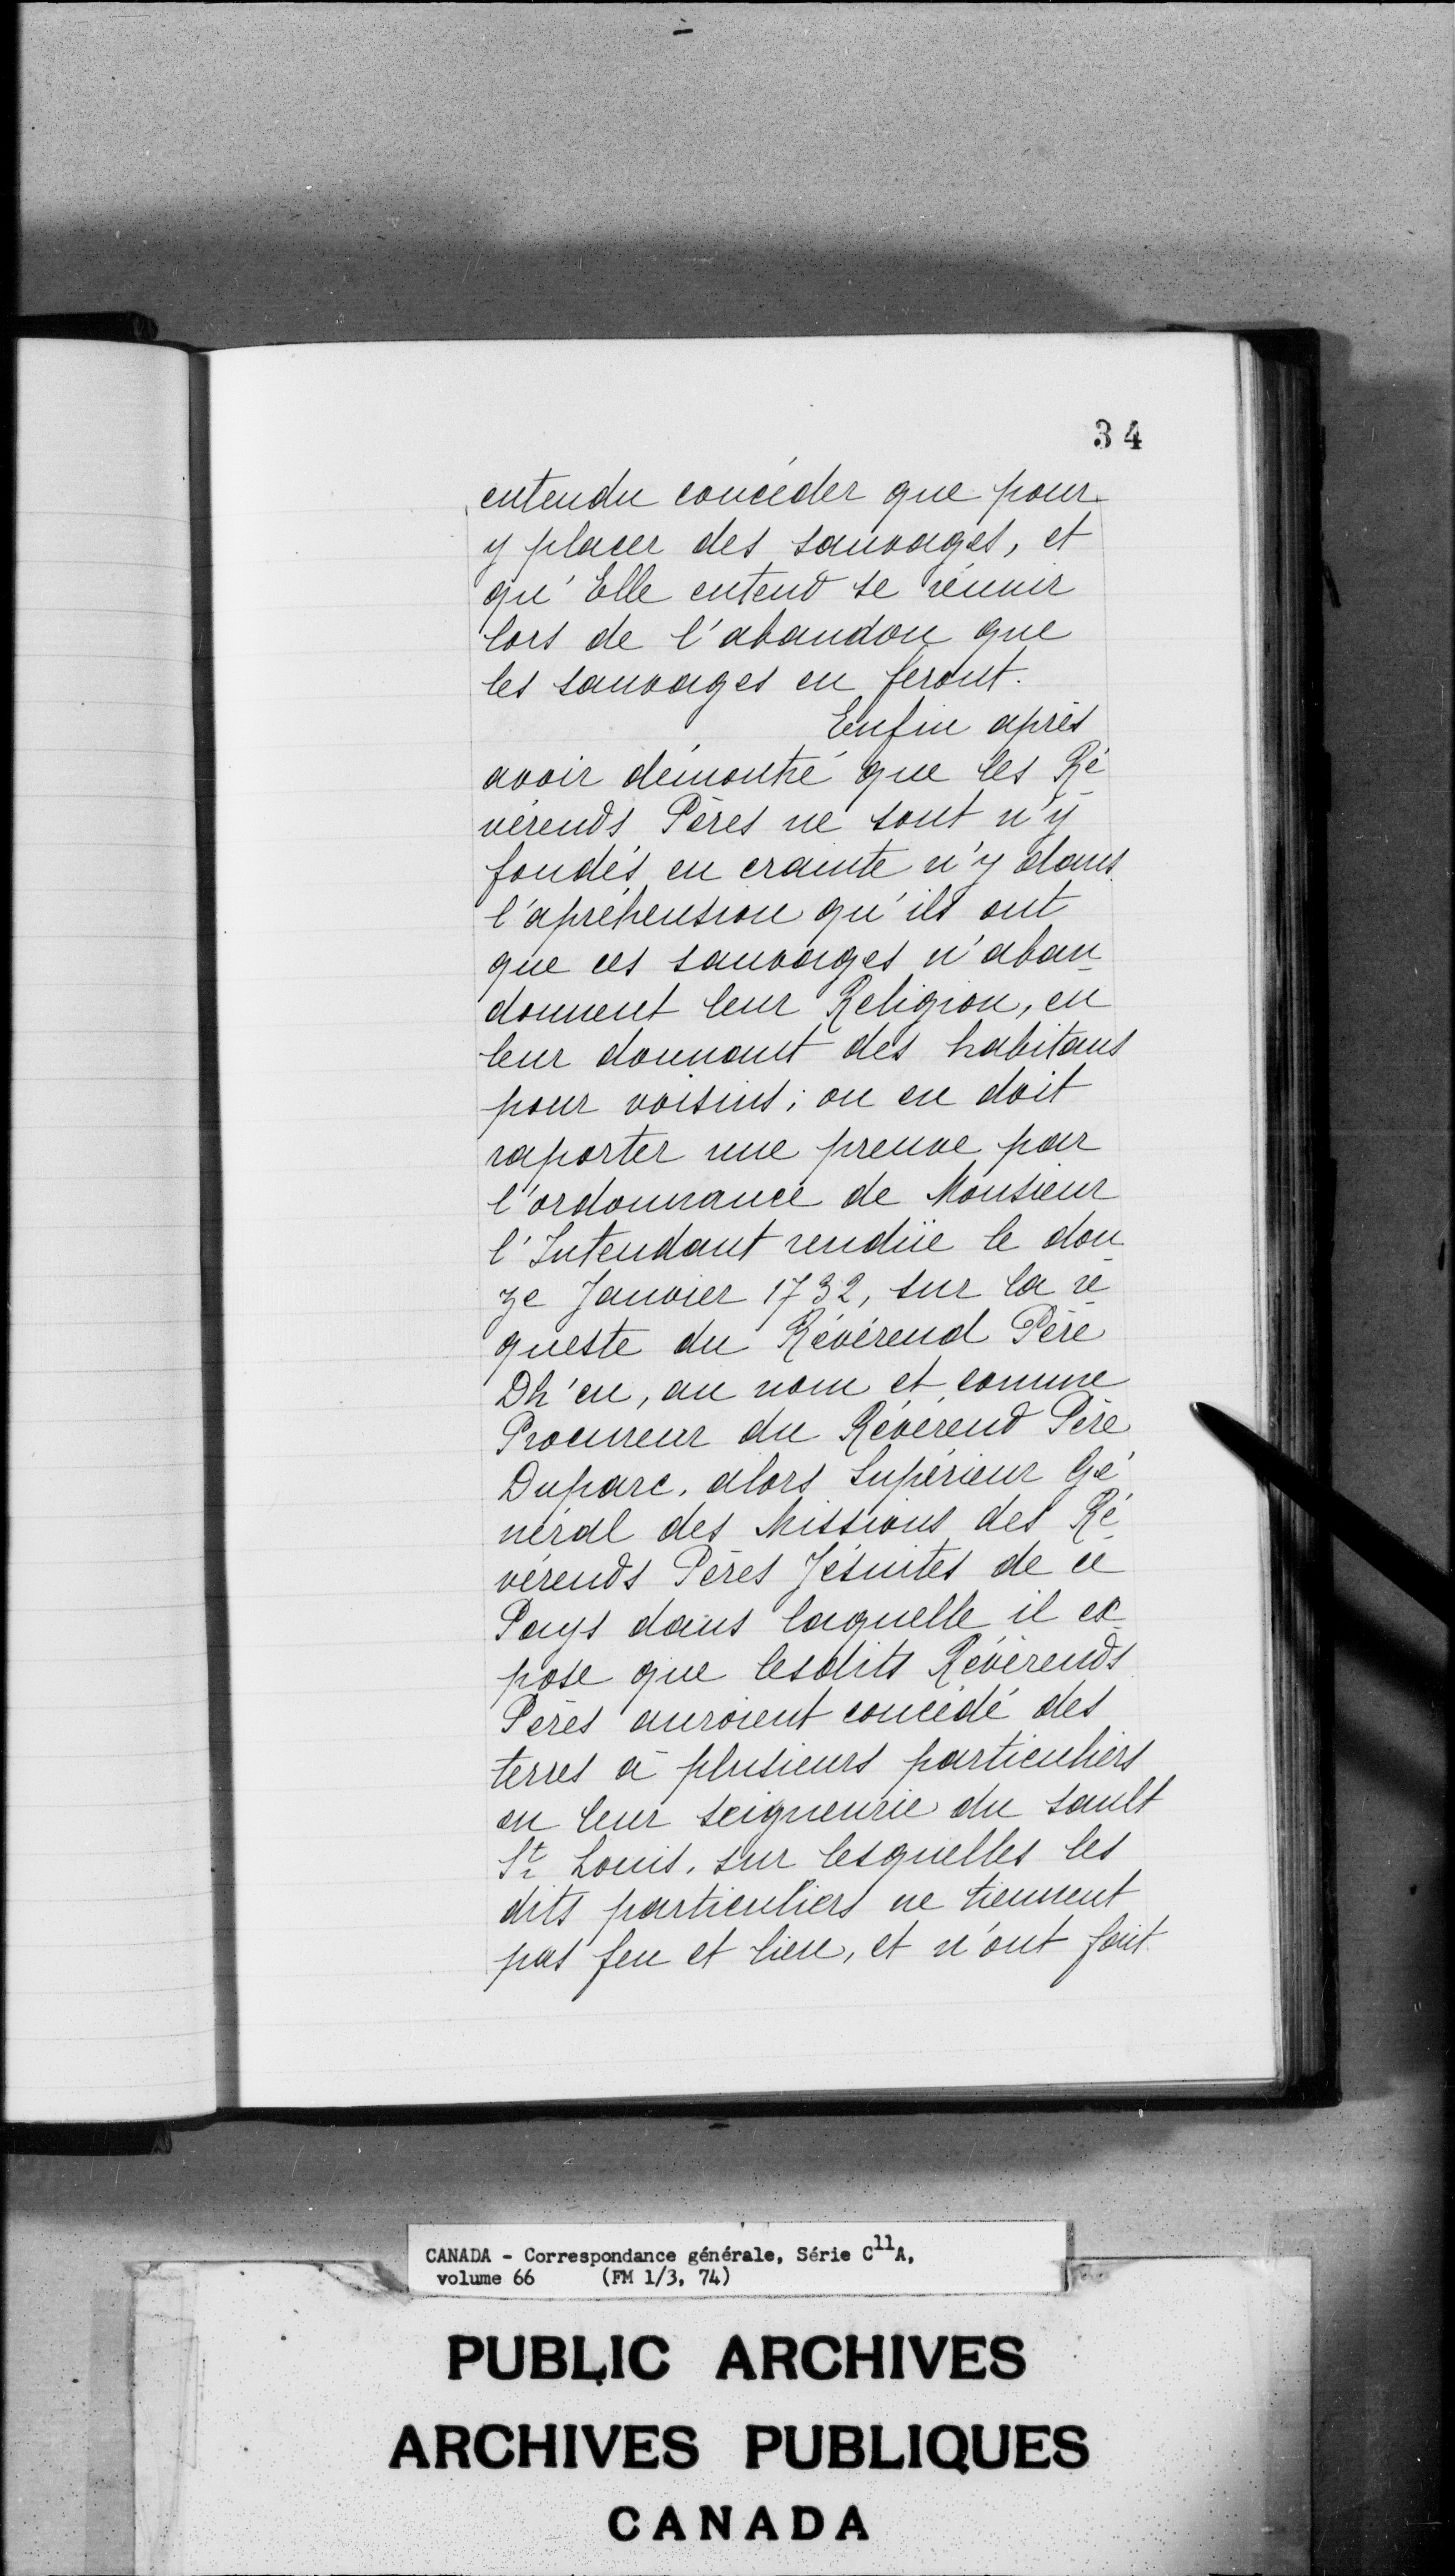 34
entendu concéder que pour
y placer des sauvages, et
qu'Elle entend se réunir
lors de l'abandon que
les sauvages en feront.
Enfin après
avoir démontré que les Ré-
vérends Pères ne sont n'y
fondés en crainte n'y dans
l'apréhension qu'ils ont
que ces sauvages n'aban-
donnent leur Religion, en
leur donnant des habitans
pour voisins; on en doit
raporter une preuve par
l'ordonnance de Monsieur
l'Intendant rendüe le dou-
ze Janvier 1732, sur la re-
queste du Révérend Père
Dh'en, au nom et comme
Procureur du Révérend Père
Duparc, alors Supérieur Gé-
néral des Missions des Ré-
vérends Pères Jésuites de ce
Pays dans laquelle il ex-
pose que lesdits Révérends
Pères auroient concédé des
terres à plusieurs particuliers
en leur seigneurie du sault
St Louis, sur lesquelles les
dits particuliers ne tiennent
pas feu et lieu, et n'ont fait
CANADA - Correspondance générale, Série C11A,
volume 66 (FM 1/3, 74)
PUBLIC ARCHIVES
ARCHIVES PUBLIQUES
CANADA